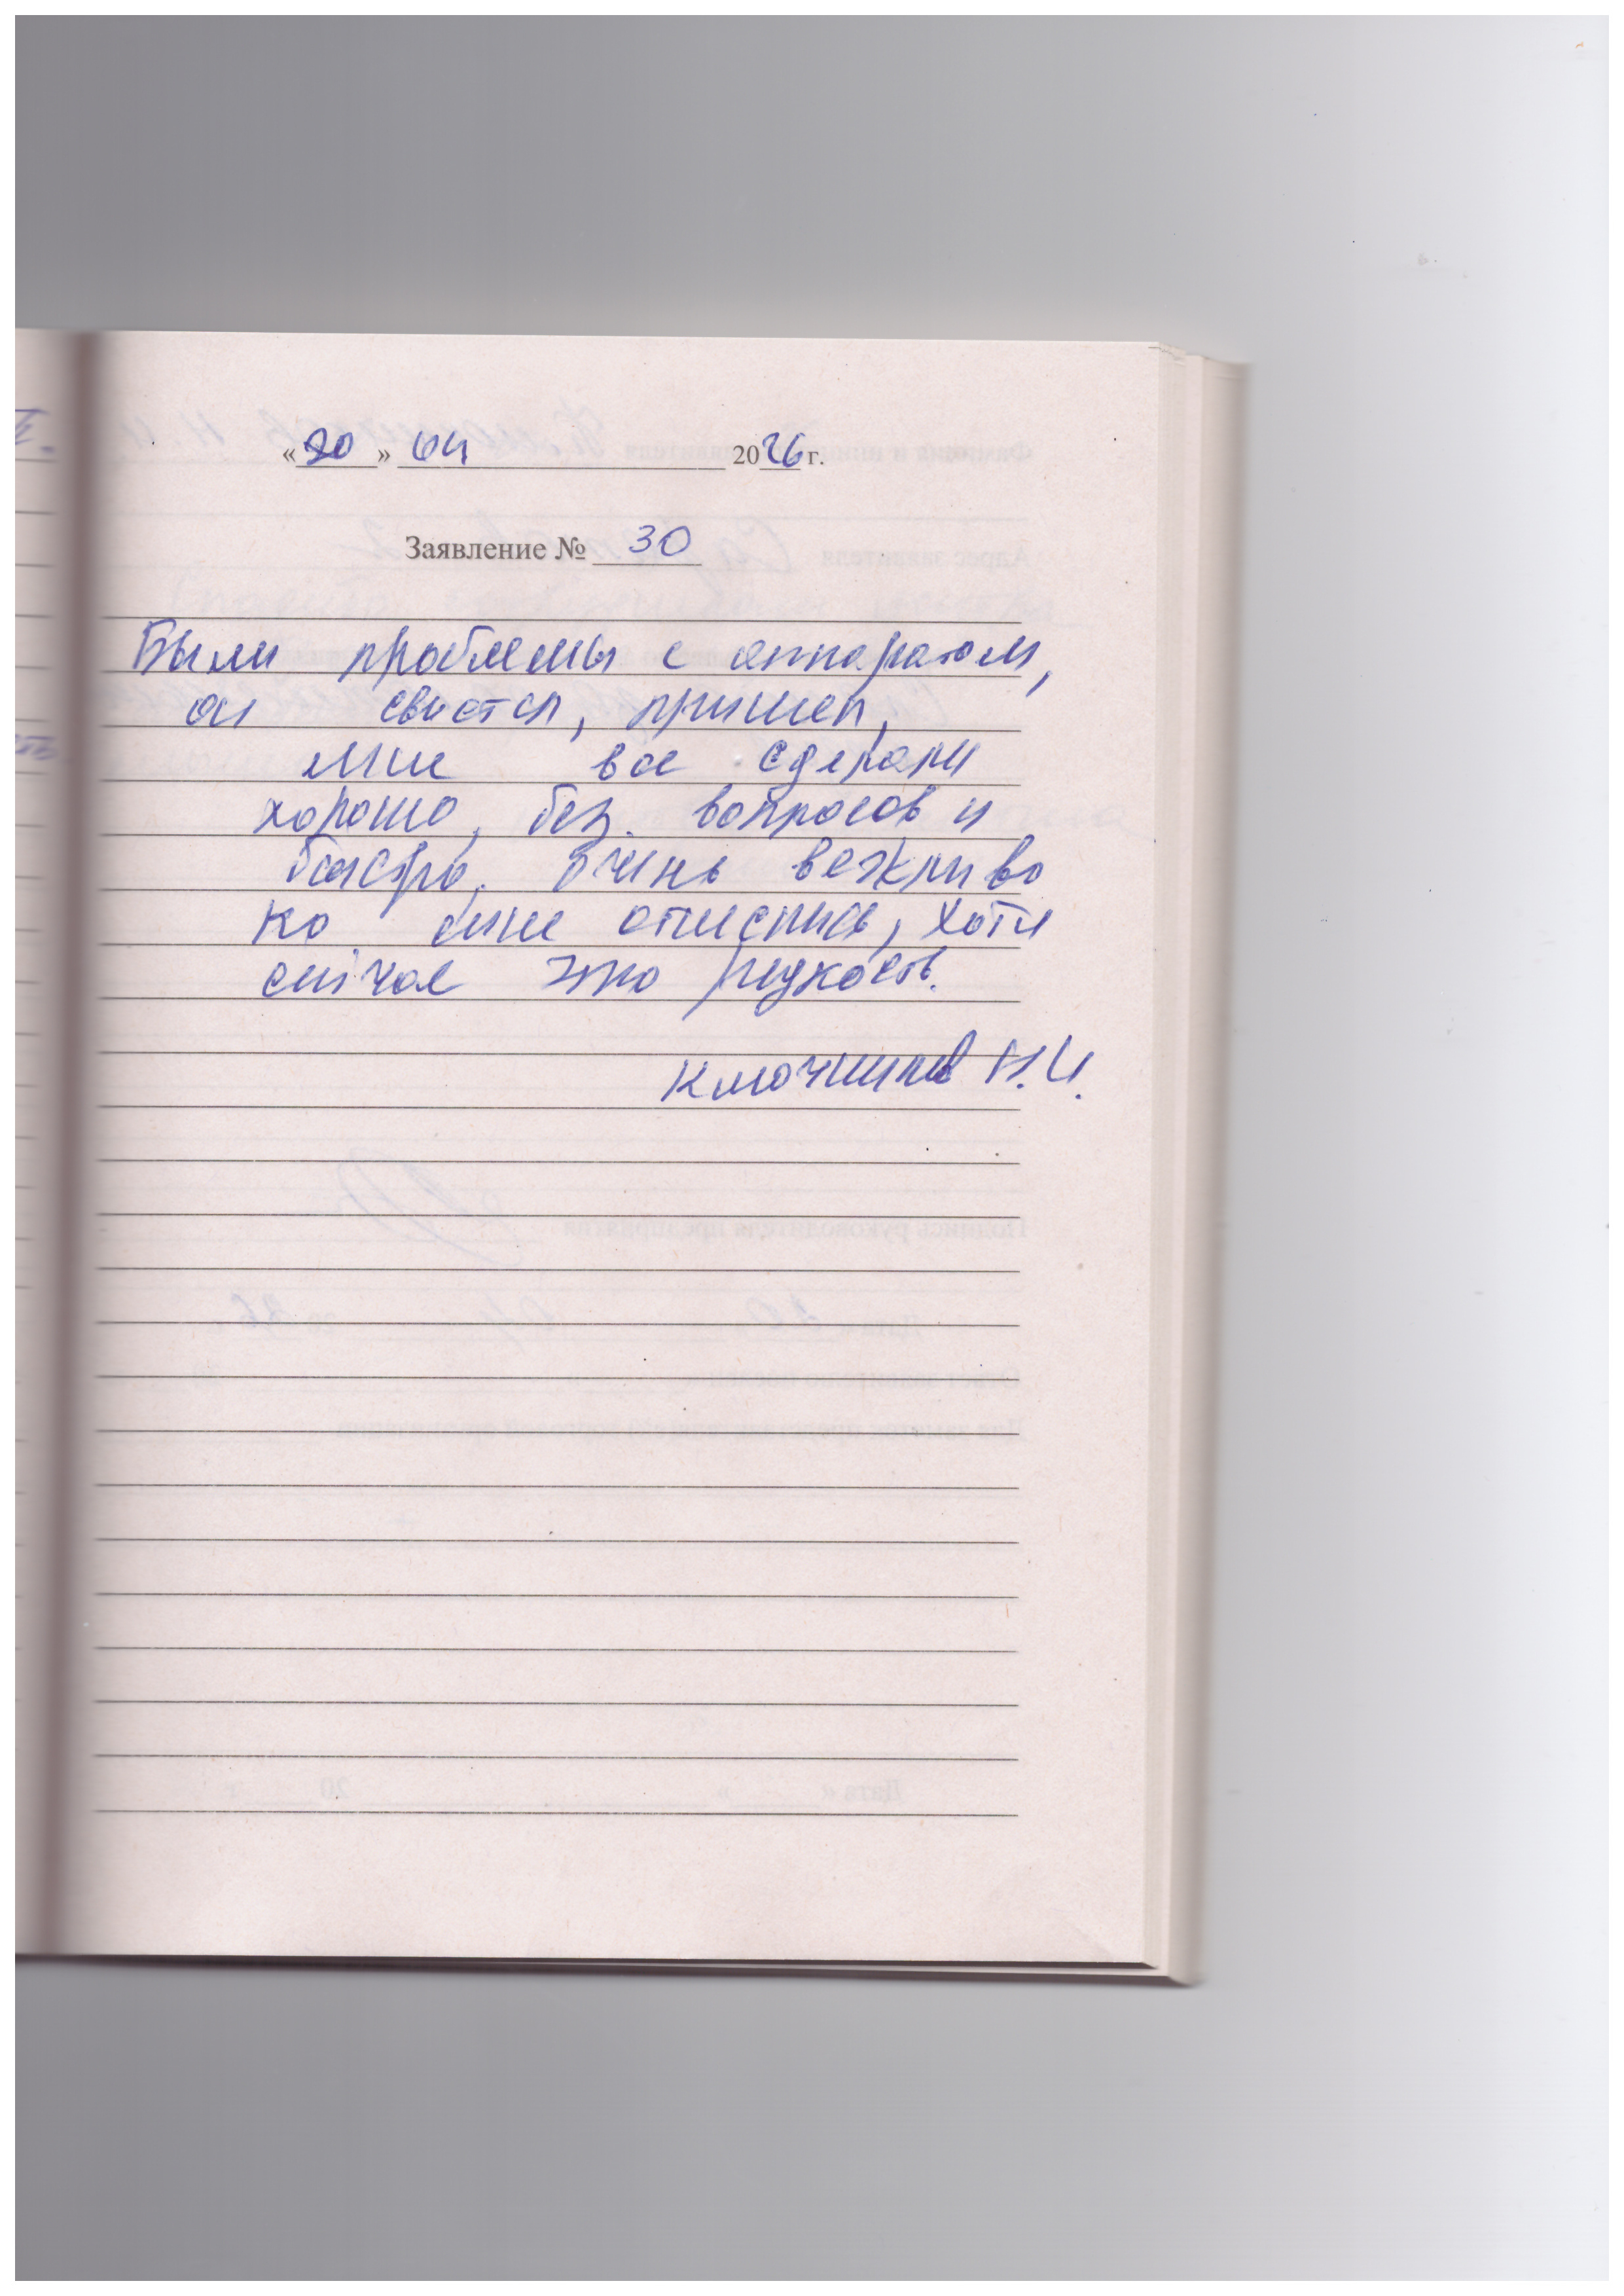 «20» 04 2026 г.
Заявление № 30
Были проблемы с аппаратом,
он свистел, пришел,
мне все сделали
хорошо, без вопросов и
быстро. Очень вежливо
ко мне отнеслись, хотя
сейчас это редкость.
Ключников Н.И.